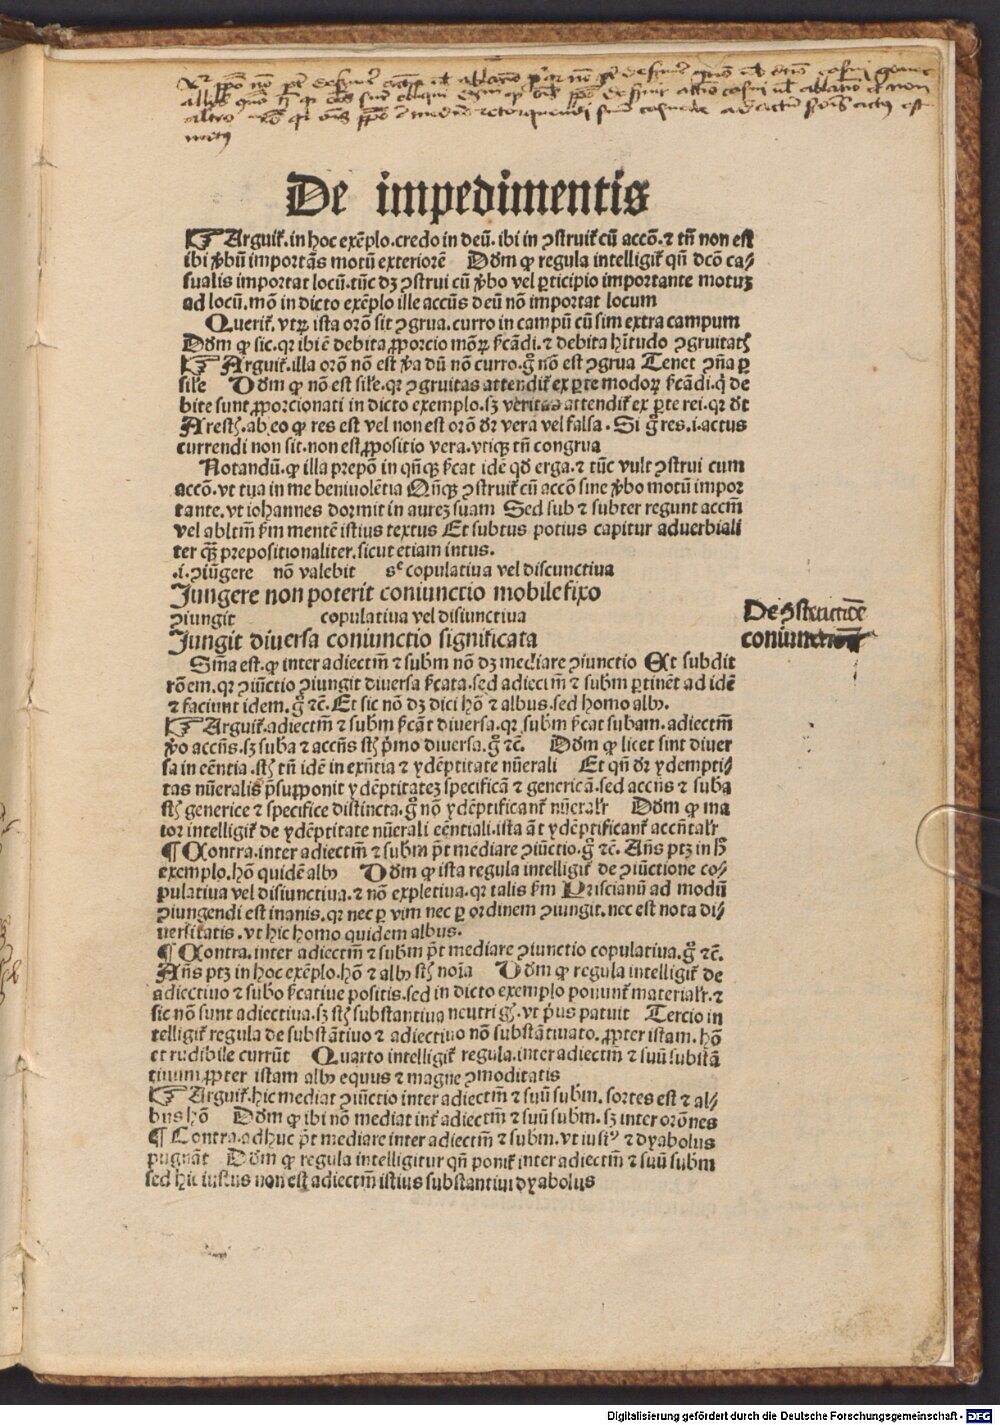 De impedimentis
Arguit̄. in hoc exẽplo. credo in deū. ibi in ꝯstruit̄ cū accō. ⁊ tñ non est
ibi ꝟbū importãs motū exteriorẽ Dōm ꝙ regula intelligit̄ qñ dcō ca⸗
sualis importat locū. tūc dꝫ ꝯstrui cū ꝟbo vel ꝑticipio importante motuꝫ
ad locū. mō in dicto exẽplo ille accūs deū nō importat locum
Querit̄. vtꝝ ista orō sit ꝯgrua. curro in campū cū sim extra campum
Dōm ꝙ sic. qꝛ ibi ẽ debita ꝓporcio moꝝ ẜcãdi. ⁊ debita hītudo ꝯgruitatꝭ
Arguit̄. illa orō nō est ꝟa dū nō curro. gͦ nō est ꝯgrua Tenet ꝯña ꝑ
sile Dōm ꝙ nō est sile. qꝛ ꝯgruitas attendit̄ ex ꝑte modoꝝ ẜcãdi. q̇ de
bite sunt ꝓporcionati in dicto exemplo. sꝫ veritas attendit̄ ex ꝑte rei. qꝛ dt
Aresꝭ. ab eo ꝙ res est vel non est orō dr̄ vera vel falsa. Si gͦ res. i. actus
currendi non sit. non est ꝓpositio vera. vtiqꝫ tñ congrua
Notandū. ꝙ illa prepō in qñqꝫ ẜcat idẽ qd̄ erga. ⁊ tūc vult ꝯstrui cum
accō. vt tua in me beniuolẽtia Qñqꝫ ꝯstruit̄ cū accō sine ꝟbo motū impor
tante. vt iohannes dormit in aureꝫ suam Sed sub ⁊ subter regunt accm̄
vel abltm̄ ẜm mentẽ istius textus Et subtus potius capitur aduerbiali
ter qꝫ̄ prepositionaliter. sicut etiam intus.
.i. ꝯiūgere nō valebit sᶜ copulatiua vel discunctiua
Jungere non poterit coniunctio mobile fixo
ꝯiungit copulatiua vel disiunctiua
Jungit diuersa coniunctio significata
De ꝯstructiōe
Sm̄a est. ꝙ inter adiectm̄ ⁊ subm nō dꝫ mediare ꝯiunctio Et subdit
rōem. qꝛ ꝯiūctio ꝯiungit diuersa ẜcata. sed adiectm̄ ⁊ subm ꝑtinēt ad idẽ
⁊ faciunt idem. gͦ ⁊c̄. Et sic nō dꝫ dici hō ⁊ albus. sed homo albꝰ.
Arguit̄. adiectm̄ ⁊ subm ẜcãt diuersa. qꝛ subm ẜcat subam. adiectm̄
ꝟo accñs. sꝫ suba ⁊ accñs sꝭ pͥmo diuersa. gͦ ⁊c̄. Dōm ꝙ licet sint diuer
sa in eẽntia. sꝭ tñ idẽ in exñtia ⁊ ydẽptitate nūerali Et qñ dr̄ ydempti⸗
tas nūeralis p̃supponit ydẽptitateꝫ specificã ⁊ genericã. sed accñs ⁊ suba
sꝭ generice ⁊ specifice distincta. gͦ nō ydẽptificant̄ nūeralr̄ Dōm ꝙ ma
ior intelligit̄ de ydẽptitate nūerali eẽntiali. ista āt ydẽptificant̄ accñtalr̄
¶ Contra. inter adiectm̄ ⁊ subm p̄t mediare ꝯiūctio. gͦ ⁊c̄. Añs ptꝫ in h̄
exemplo. hō quidẽ albꝰ Dōm ꝙ ista regula intelligit̄ de ꝯiūctione co⸗
pulatiua vel disiunctiua. ⁊ nō expletiua. qꝛ talis ẜm Priscianū ad modū
ꝯiungendi est inanis. qꝛ nec ꝑ vim nec ꝑ ordinem ꝯiungit. nec est nota di⸗
uersitatis. vt hic homo quidem albus.
¶ Contra. inter adiectm̄ ⁊ subm p̄t mediare ꝯiunctio copulatiua. gͦ ⁊c̄.
Añs ptꝫ in hoc exẽplo. hō ⁊ albꝰ sꝭ noīa Dōm ꝙ regula intelligit̄ de
adiectiuo ⁊ subo ẜcatiue positis. sed in dicto exemplo ponunt̄ materialr̄. ⁊
sic nō sunt adiectiua. sꝫ sꝭ substantiua neutri gꝭ. vt pͥus patuit Tercio in
telligit̄ regula de substãtiuo ⁊ adiectiuo nō substãtiuato. ꝓpter istam. hō
et rudibile currūt Quarto intelligit̄ regula. inter adiectm̄ ⁊ suū substã
tiuum ꝓpter istam albꝰ equus ⁊ magne ꝯmoditatis
Arguit̄. hic mediat ꝯiūctio inter adiectm̄ ⁊ suū subm. sortes est ⁊ al⸗
bus hō Dōm ꝙ ibi nō mediat int̄ adiectm̄ ⁊ suū subm. sꝫ inter orōnes
¶ Contra. adhuc p̄t mediare inter adiectm̄ ⁊ subm. vt iustꝰ ⁊ dyabolus
pugnãt Dōm ꝙ regula intelligitur qñ ponit̄ inter adiectm̄ ⁊ suū subm
sed hic iustus non est adiectm̄ istius substantiui dyabolus
Digitalisierung gefördert durch die Deutsche Forschungsgemeinschaft - DFG